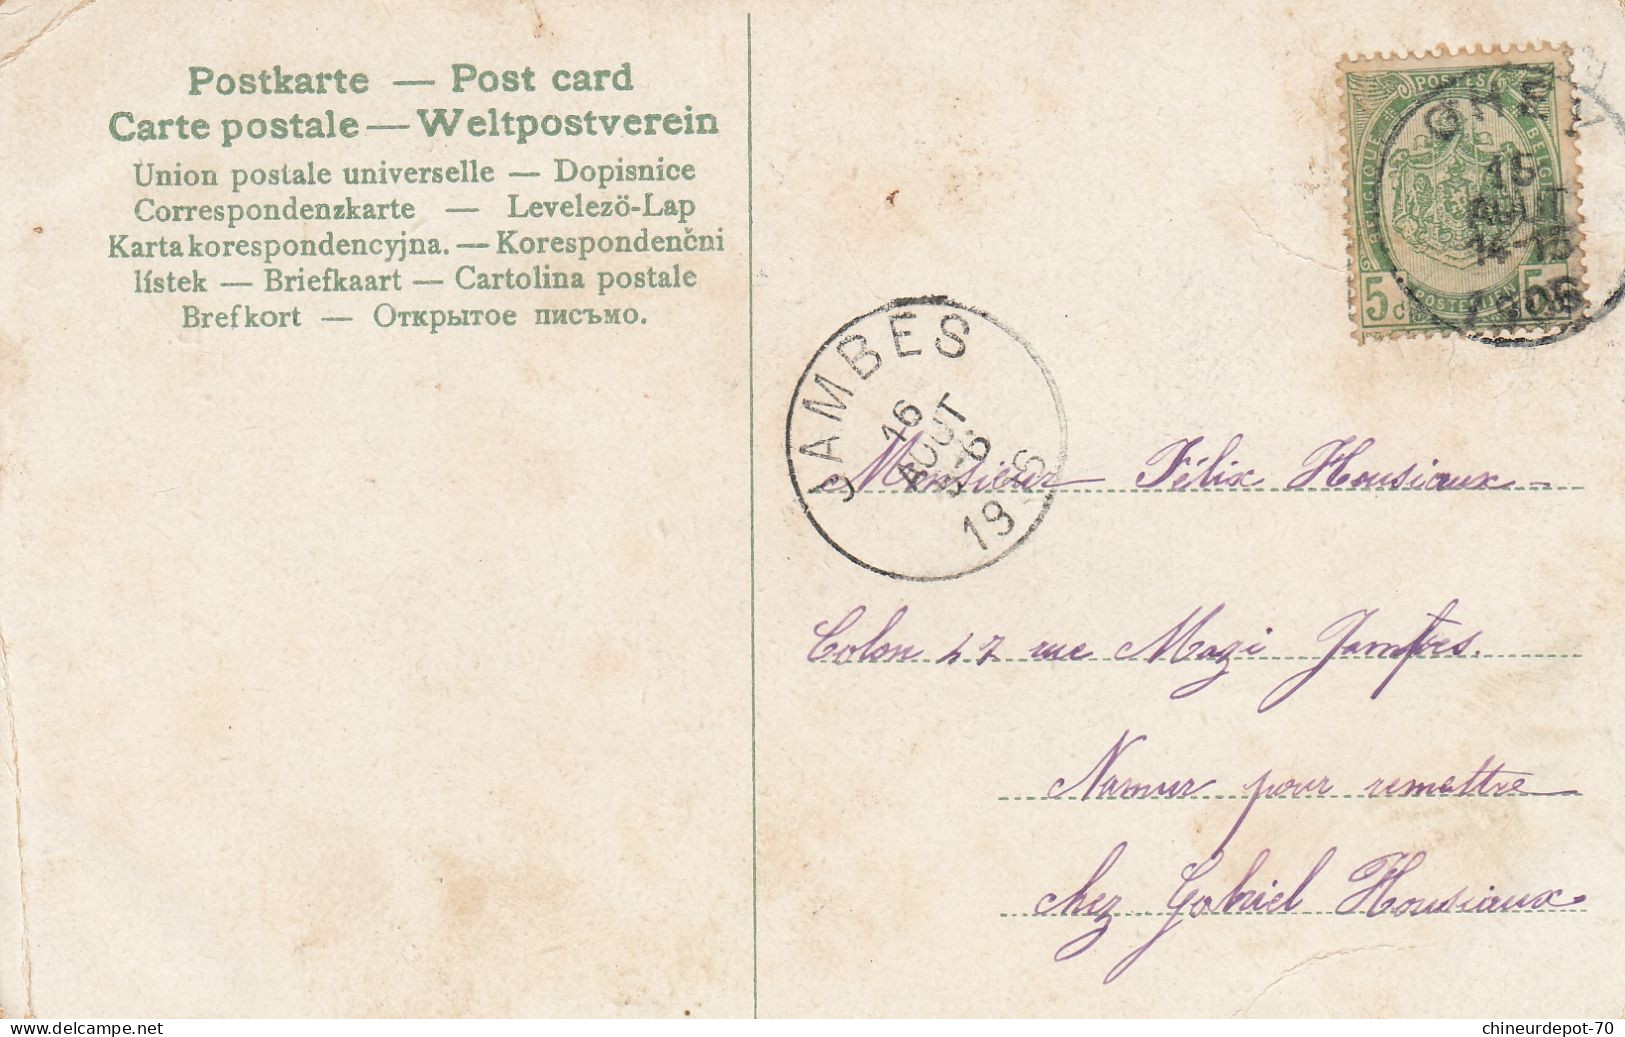 Postkarte — Post card
Carte postale — Weltpostverein
Union postale universelle — Dopisnice
Correspondenzkarte — Levelezö-Lap
Karta korespondencyjna. — Korespondenčni
lístek — Briefkaart — Cartolina postale
Brefkort — Открытое письмо.
POSTES
BELGIQUE BELGIË
5c POSTERIJEN 5c
15
AOUT
14-15
1906
JAMBES
16
AOUT
5-6
1906
Monsieur Félix Housiaux
Colon 47 rue Mazi Jambes.
Namur pour remettre
chez Gabriel Housiaux
chineurdepot-70